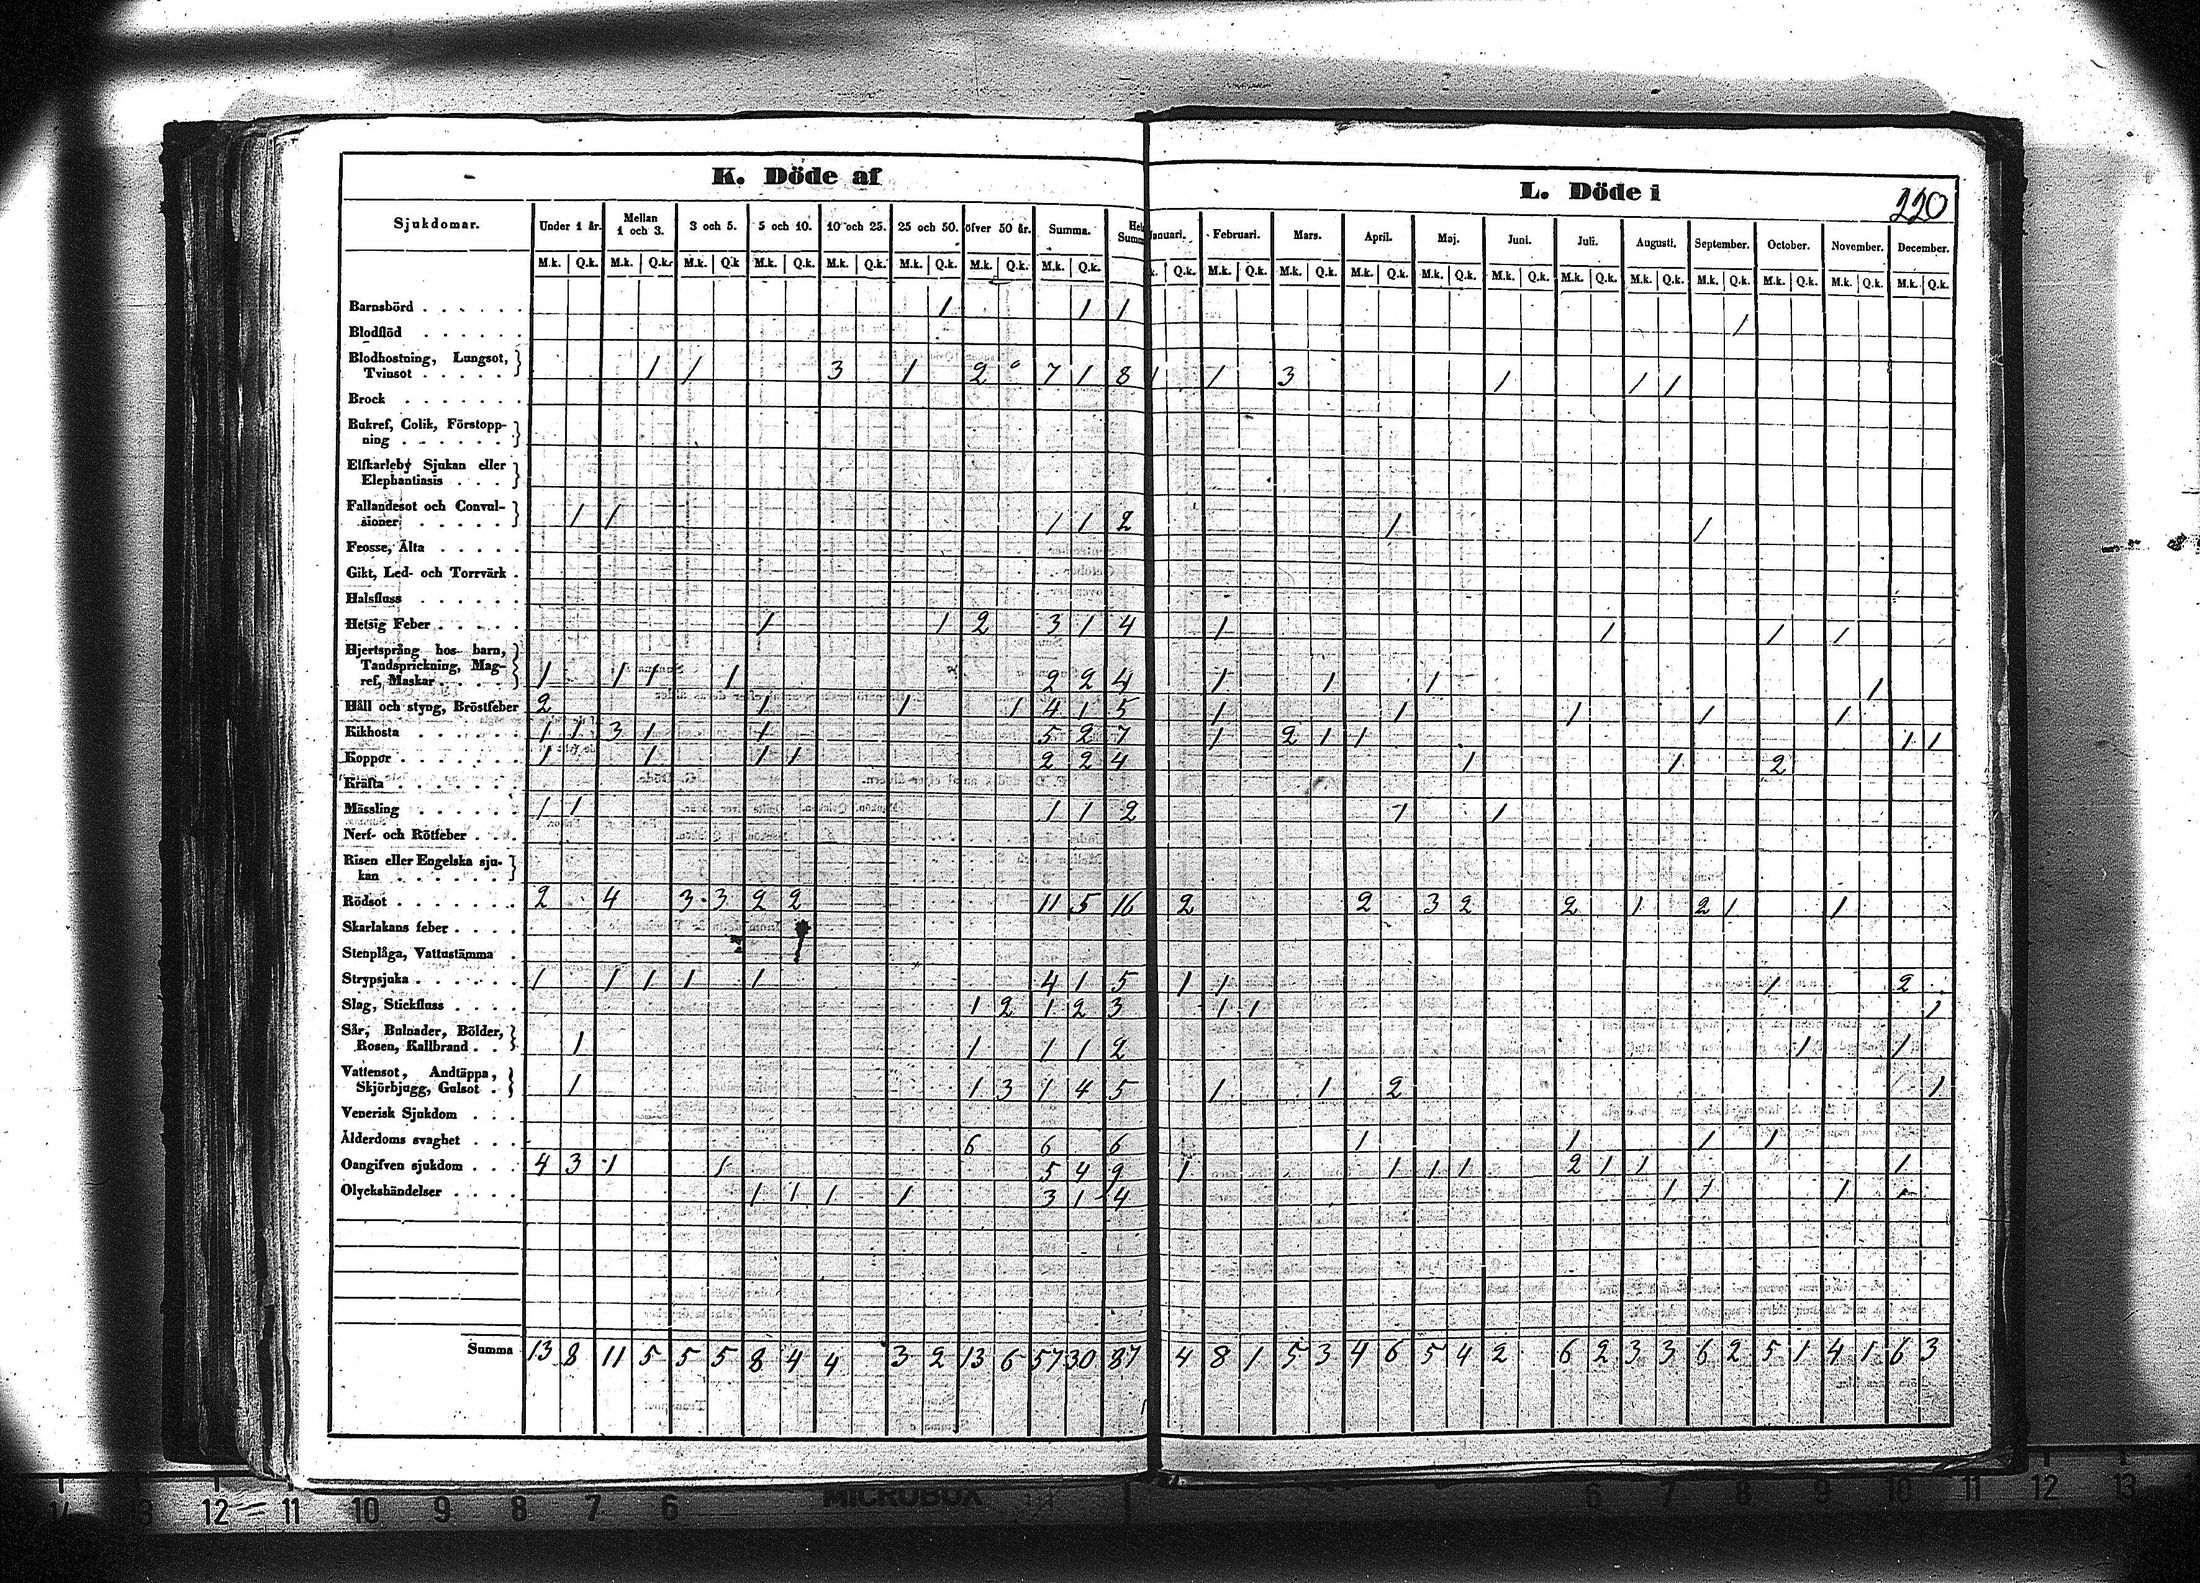 K. Döde af
L. Döde i
220
Sjukdomar. Under 1 år. Mellan 1 och 3. 3 och 5. 5 och 10. 10 och 25. 25 och 50. öfver 50 år. Summa. Januari. Februari. Mars. April. Maj. Juni. Juli. Augusti. September. October. November. December.
M.k. Q.k. M.k. Q.k. M.k. Q.k M.k. Q.k. M.k. Q.k. M.k. Q.k. M.k. Q.k. M.k. Q.k. Q.k. M.k. Q.k. M.k. Q.k. M.k. Q.k. M.k. Q.k. M.k. Q.k. M.k. Q.k. M.k. Q.k. M.k. Q.k. M.k. Q.k. M.k. Q.k. M.k. Q.k.
Barnsbörd . . . . . . 1 1 1 1
Blodflöd . . . . . .
Blodhostning, Lungsot,
Tvinsot . . . . . 1 1 3 1 2 7 1 8 1 1 3 1 1 1
Brock . . . . . . .
Bukref, Colik, Förstopp-
ning . . . . . . .
Elfkarleby Sjukan eller
Elephantiasis . . .
Fallandesot och Convul-
sioner . . . . . 1 1 1 1 2 1 1
Frosse, Älta . . . . .
Gikt, Led- och Torrvärk .
Halsfluss . . . . . .
Hetsig Feber . . . . . 1 1 2 3 1 4 1 1 1 1
Hjertsprång hos barn,
Tandsprickning, Mag-
ref, Maskar . . . . 1 1 1 1 2 2 4 1 1 1 1
Håll och styng, Bröstfeber 2 1 1 1 4 1 5 1 1 1 1 1
Kikhosta . . . . . . 1 1 3 1 1 5 2 7 1 2 1 1 1 1
Koppor . . . . . . . 1 1 1 1 2 2 4 1 1 2
Kräfta . . . . . . .
Mässling . . . . . . 1 1 1 1 2 1 1
Nerf- och Rötfeber . . .
Risen eller Engelska sju-
kan . . . . . .
Rödsot . . . . . . . 2 4 3 3 2 2 11 5 16 2 2 3 2 2 1 2 1 1
Skarlakans feber . . . .
Stenplåga, Vattustämma .
Strypsjuka . . . . . . 1 1 1 1 1 4 1 5 1 1 1 2
Slag, Stickfluss . . . . 1 2 1 2 3 1 1 1
Sår, Bulnader, Bölder,
Rosen, Kallbrand . . 1 1 1 1 2 1 1
Vattensot, Andtäppa,
Skjörbjugg, Gulsot . 1 1 3 1 4 5 1 1 2 1
Venerisk Sjukdom . . .
Ålderdoms svaghet . . . 6 6 6 1 1 1 1
Oangifven sjukdom . . . 4 3 1 1 5 4 9 1 1 1 1 2 1 1 1
Olyckshändelser . . . . 1 1 1 1 3 1 4 1 1 1
Summa 13 8 11 5 5 5 8 4 4 3 2 13 6 57 30 87 4 8 1 5 3 4 6 5 4 2 6 2 3 3 6 2 5 1 4 1 6 3
14 12 11 10 9 8 7 6 MICROBOX 6 7 8 9 10 11 12 13